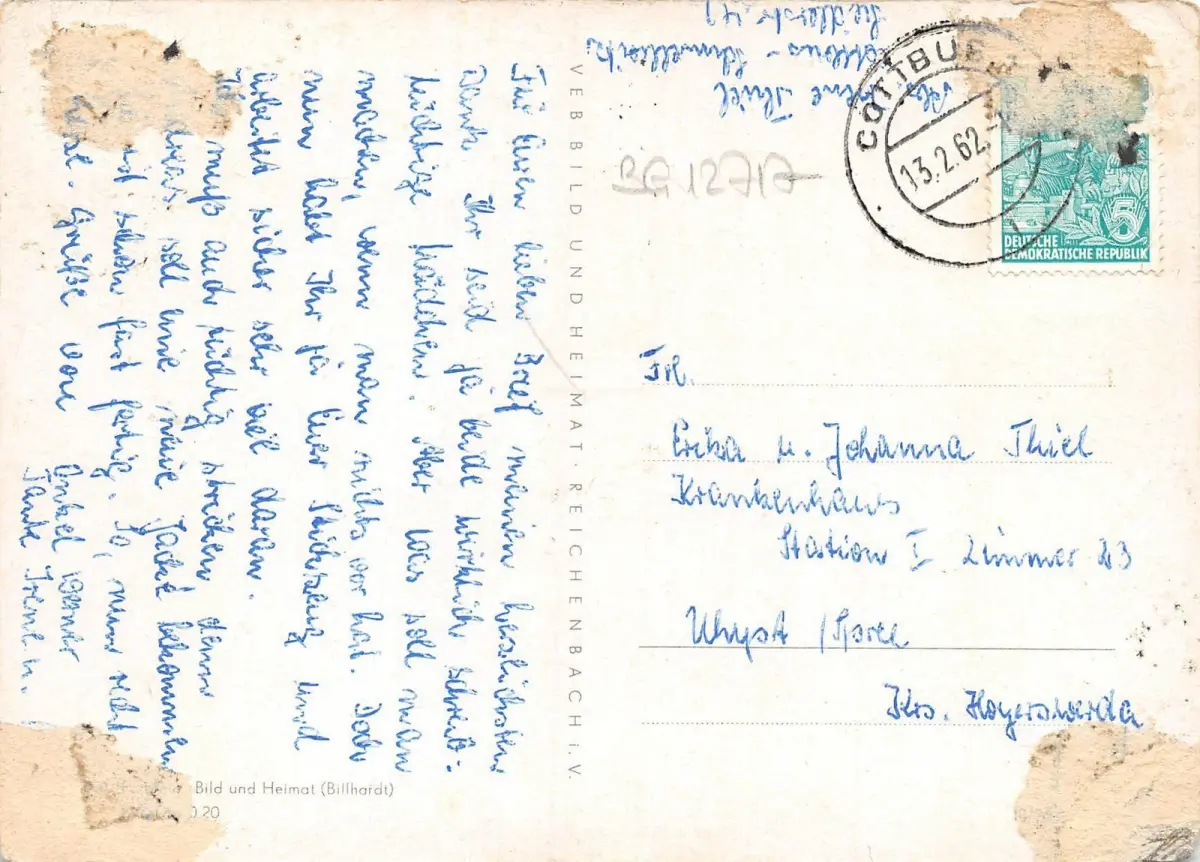 Für Euren lieben Brief meinen herzlichsten
Dank. Ihr seid ja beide wirklich schreib-
tüchtige Mädchen. Aber was soll man
machen, wenn man nichts vor hat. Doch
nun habt Ihr ja Euer Strickzeug und
arbeitet sicher sehr viel daran.
muß auch tüchtig stricken denn
soll eine neue Jacke bekommen
ist schon fast fertig. So, nun recht
Grüße von
Onkel Werner
Tante Irene u.
VEB BILD UND HEIMAT · REICHENBACH i. V.
Bild und Heimat (Billhardt)
20
Irene Thiel
Cottbus - Schmellwitz
Siedlerstr. 41
BG 12717
COTTBUS
13.2.62
5
DEUTSCHE
DEMOKRATISCHE REPUBLIK
Frl.
Erika u. Johanna Thiel
Krankenhaus
Station I Zimmer 23
Uhyst / Spree
Krs. Hoyerswerda